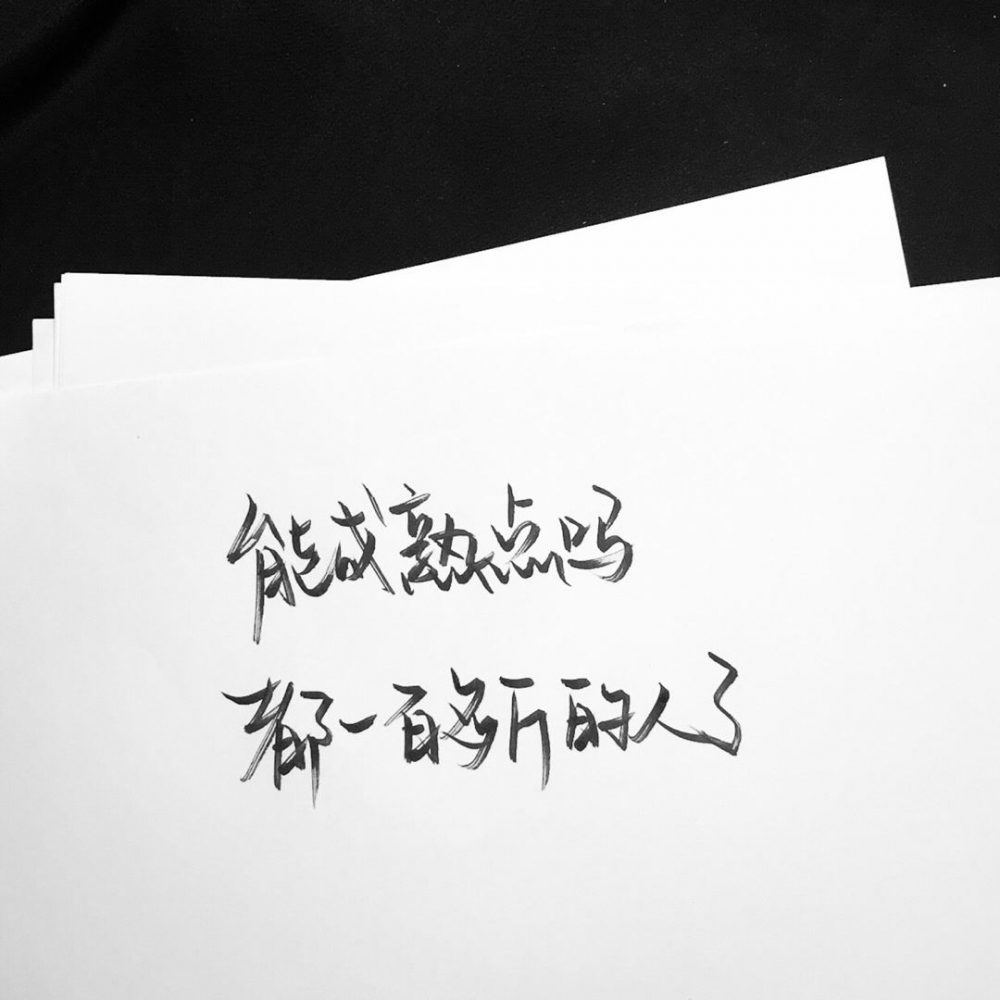 能成熟点吗
都一百多斤的人了